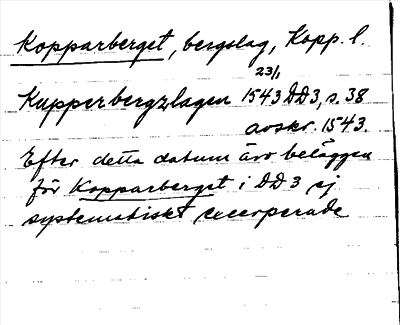 Kopparberget, bergslag, Kopp. l.
Kupperbergzlagen 1543 23/1 DD3, s. 38
avskr. 1543.
Efter detta datum äro beläggen
för Kopparberget i DD 3 ej
systematiskt excerperade